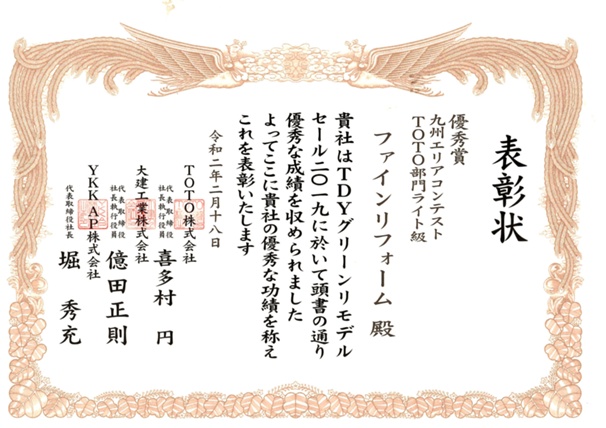 表彰状
優秀賞
九州エリアコンテスト
TOTO部門ライト級
ファインリフォーム 殿
貴社はTDYグリーンリモデル
セール二〇一九に於いて頭書の通り
優秀な成績を収められました
よってここに貴社の優秀な功績を称え
これを表彰いたします
令和二年二月十八日
TOTO株式会社
代表取締役
社長執行役員
喜多村 円
大建工業株式会社
代表取締役
社長執行役員
億田正則
YKK AP株式会社
代表取締役社長
堀 秀充